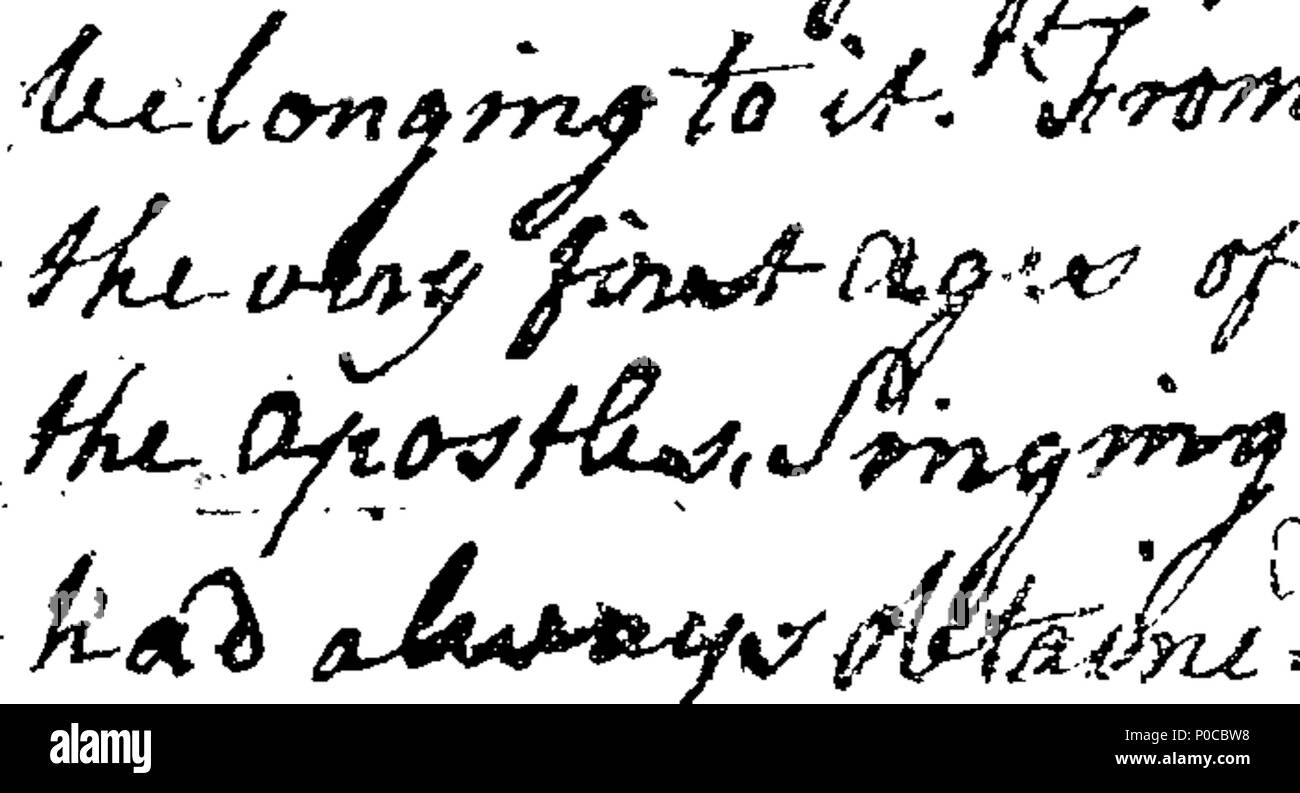 belonging to it. From
the very first ages of
the Apostles, Singing
had always obtaine-
alamy
Image ID: P0CBW8
www.alamy.com